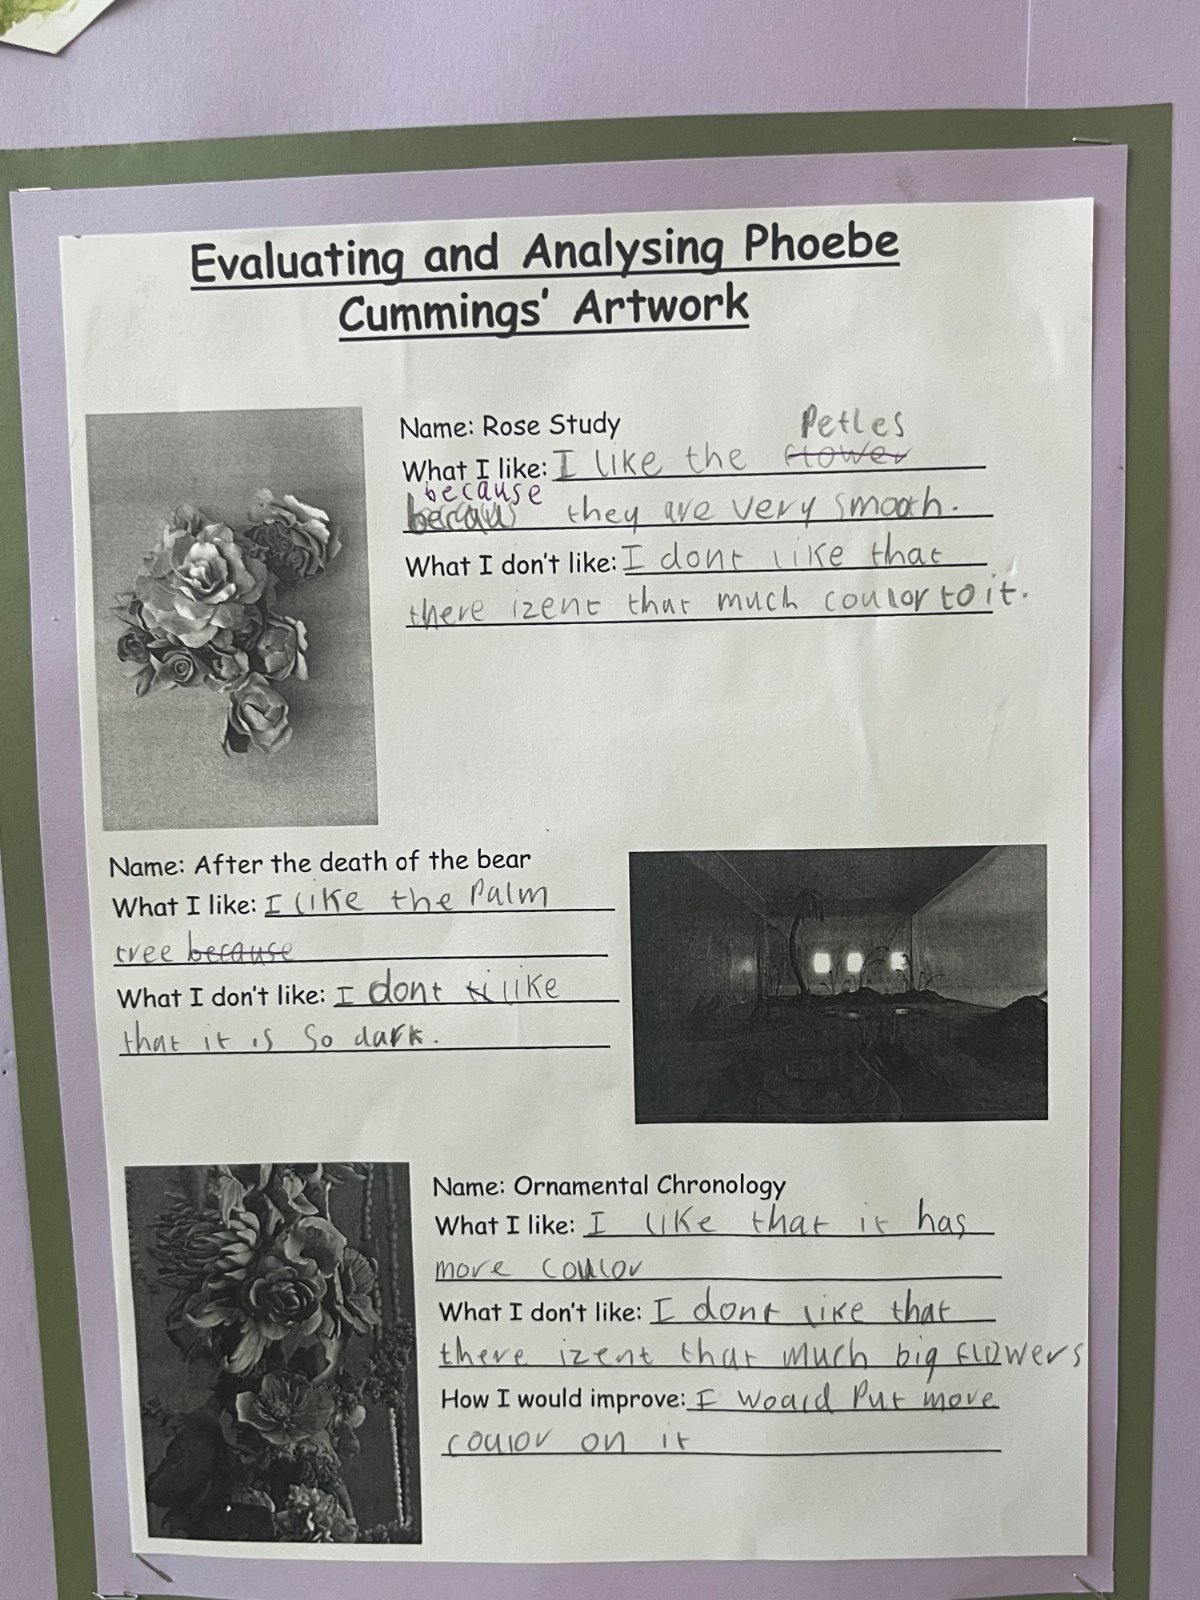 Evaluating and Analysing Phoebe
Cummings' Artwork
Name: Rose Study
Petles
What I like: I like the flower
because
becaus they are very smooth.
What I don't like: I dont like that
there izent that much coulor to it.
Name: After the death of the bear
What I like: I like the Palm
tree because
What I don't like: I dont like
that it is so dark.
Name: Ornamental Chronology
What I like: I like that it has
more coulor
What I don't like: I dont like that
there izent that much big flowers
How I would improve: I woald Put more
coulor on it